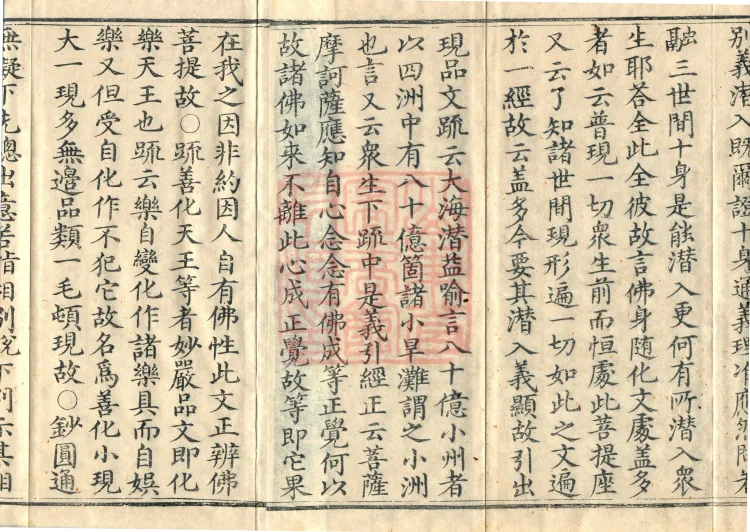 別義潜入既爾證十身通義理准應然問者
融三世間十身是能潜入更何有所潜入衆
生耶荅全此全彼故言佛身随化文處盖多
者如云普現一切衆生前而恒處此菩提座
又云了知諸世間現形遍一切如此之文遍
於一經故云盖多今要其潜入義顯故引出
現品文䟽云大海潜益喻言八十億小州者
以四洲中有八十億箇諸小旱灘謂之小洲
也言又云衆生下䟽中是義引經正云菩薩
摩訶薩應知自心念念有佛成等正覺何以
故諸佛如來不離此心成正覺故等即它果
在我之因非約因人自有佛性此文正辨佛
菩提故〇䟽善化天王等者妙嚴品文即化
樂天王也䟽云樂自變化作諸樂具而自娱
樂又但受自化作不犯它故名爲善化小現
大一現多無邉品類一毛頓現故〇鈔圓通
無礙下先總出意若指相別說下別示其相